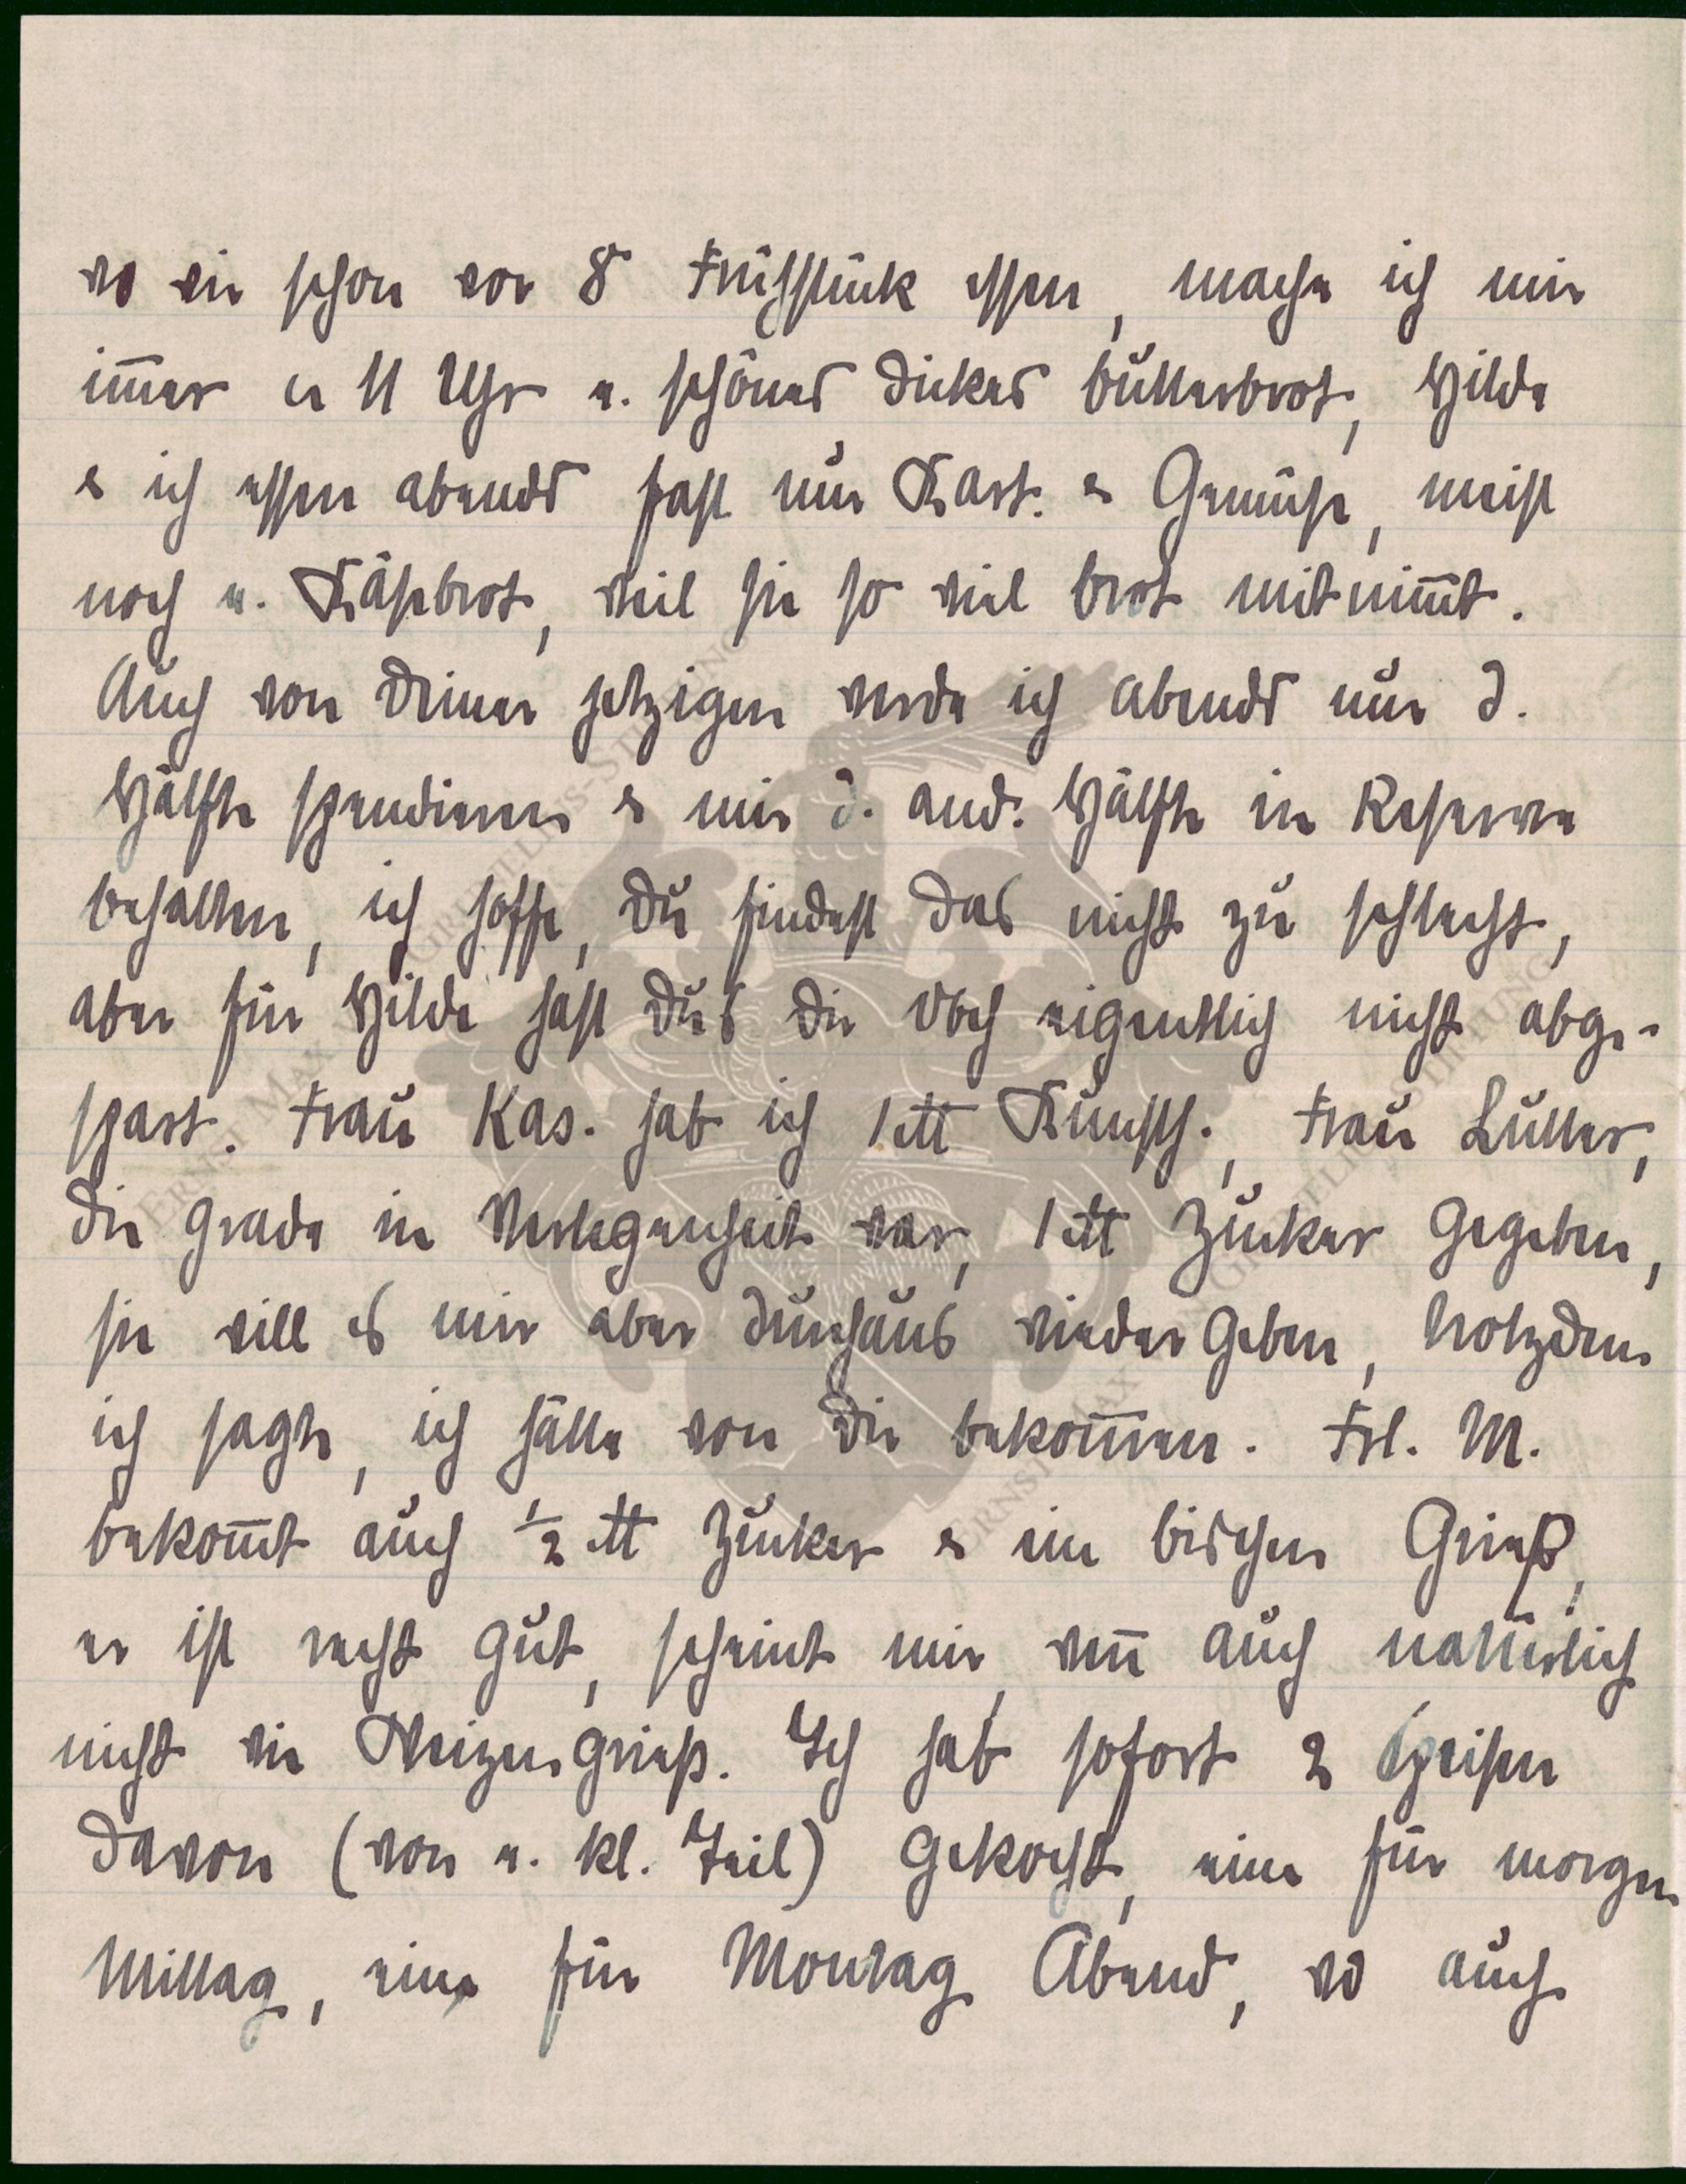 wo wir schon vor 8 Frühstück essen, mache ich mir
im̄er u 11 Uhr e. schönes dickes Butterbrot, Hilde
& ich essen abends fast nur Kart. & Gemüse, meist
noch e. Käsebrot, weil sie so viel Brot mitnim̄t.
Auch von Deiner jetzigen werde ich abends nur d.
Hälfte spendieren & mir d. and. Hälfte in Reserve
behalten, ich hoffe, Du findest das nicht zu schlecht,
aber für Hilde hast Du's Dir doch eigentlich nicht abge-
spart. Frau Kas. hab ich 1 ℔ Kunsth., Frau Lutter,
die grade in Verlegenheit war, 1 ℔ Zucker gegeben,
sie will es mir aber durchaus wieder geben, trotzdem
ich sagte, ich hätte von Dir bekom̄en. Frl. M.
bekom̄t auch ½ ℔ Zucker & ein bischen Grieß,
er ist recht gut, scheint mir, wen̄ auch natürlich
nicht wie Weizengrieß. Ich hab sofort 2 Speisen
davon (von e. kl. Teil) gekocht, eine für morgen
Mittag, eine für Montag Abend, wo auch